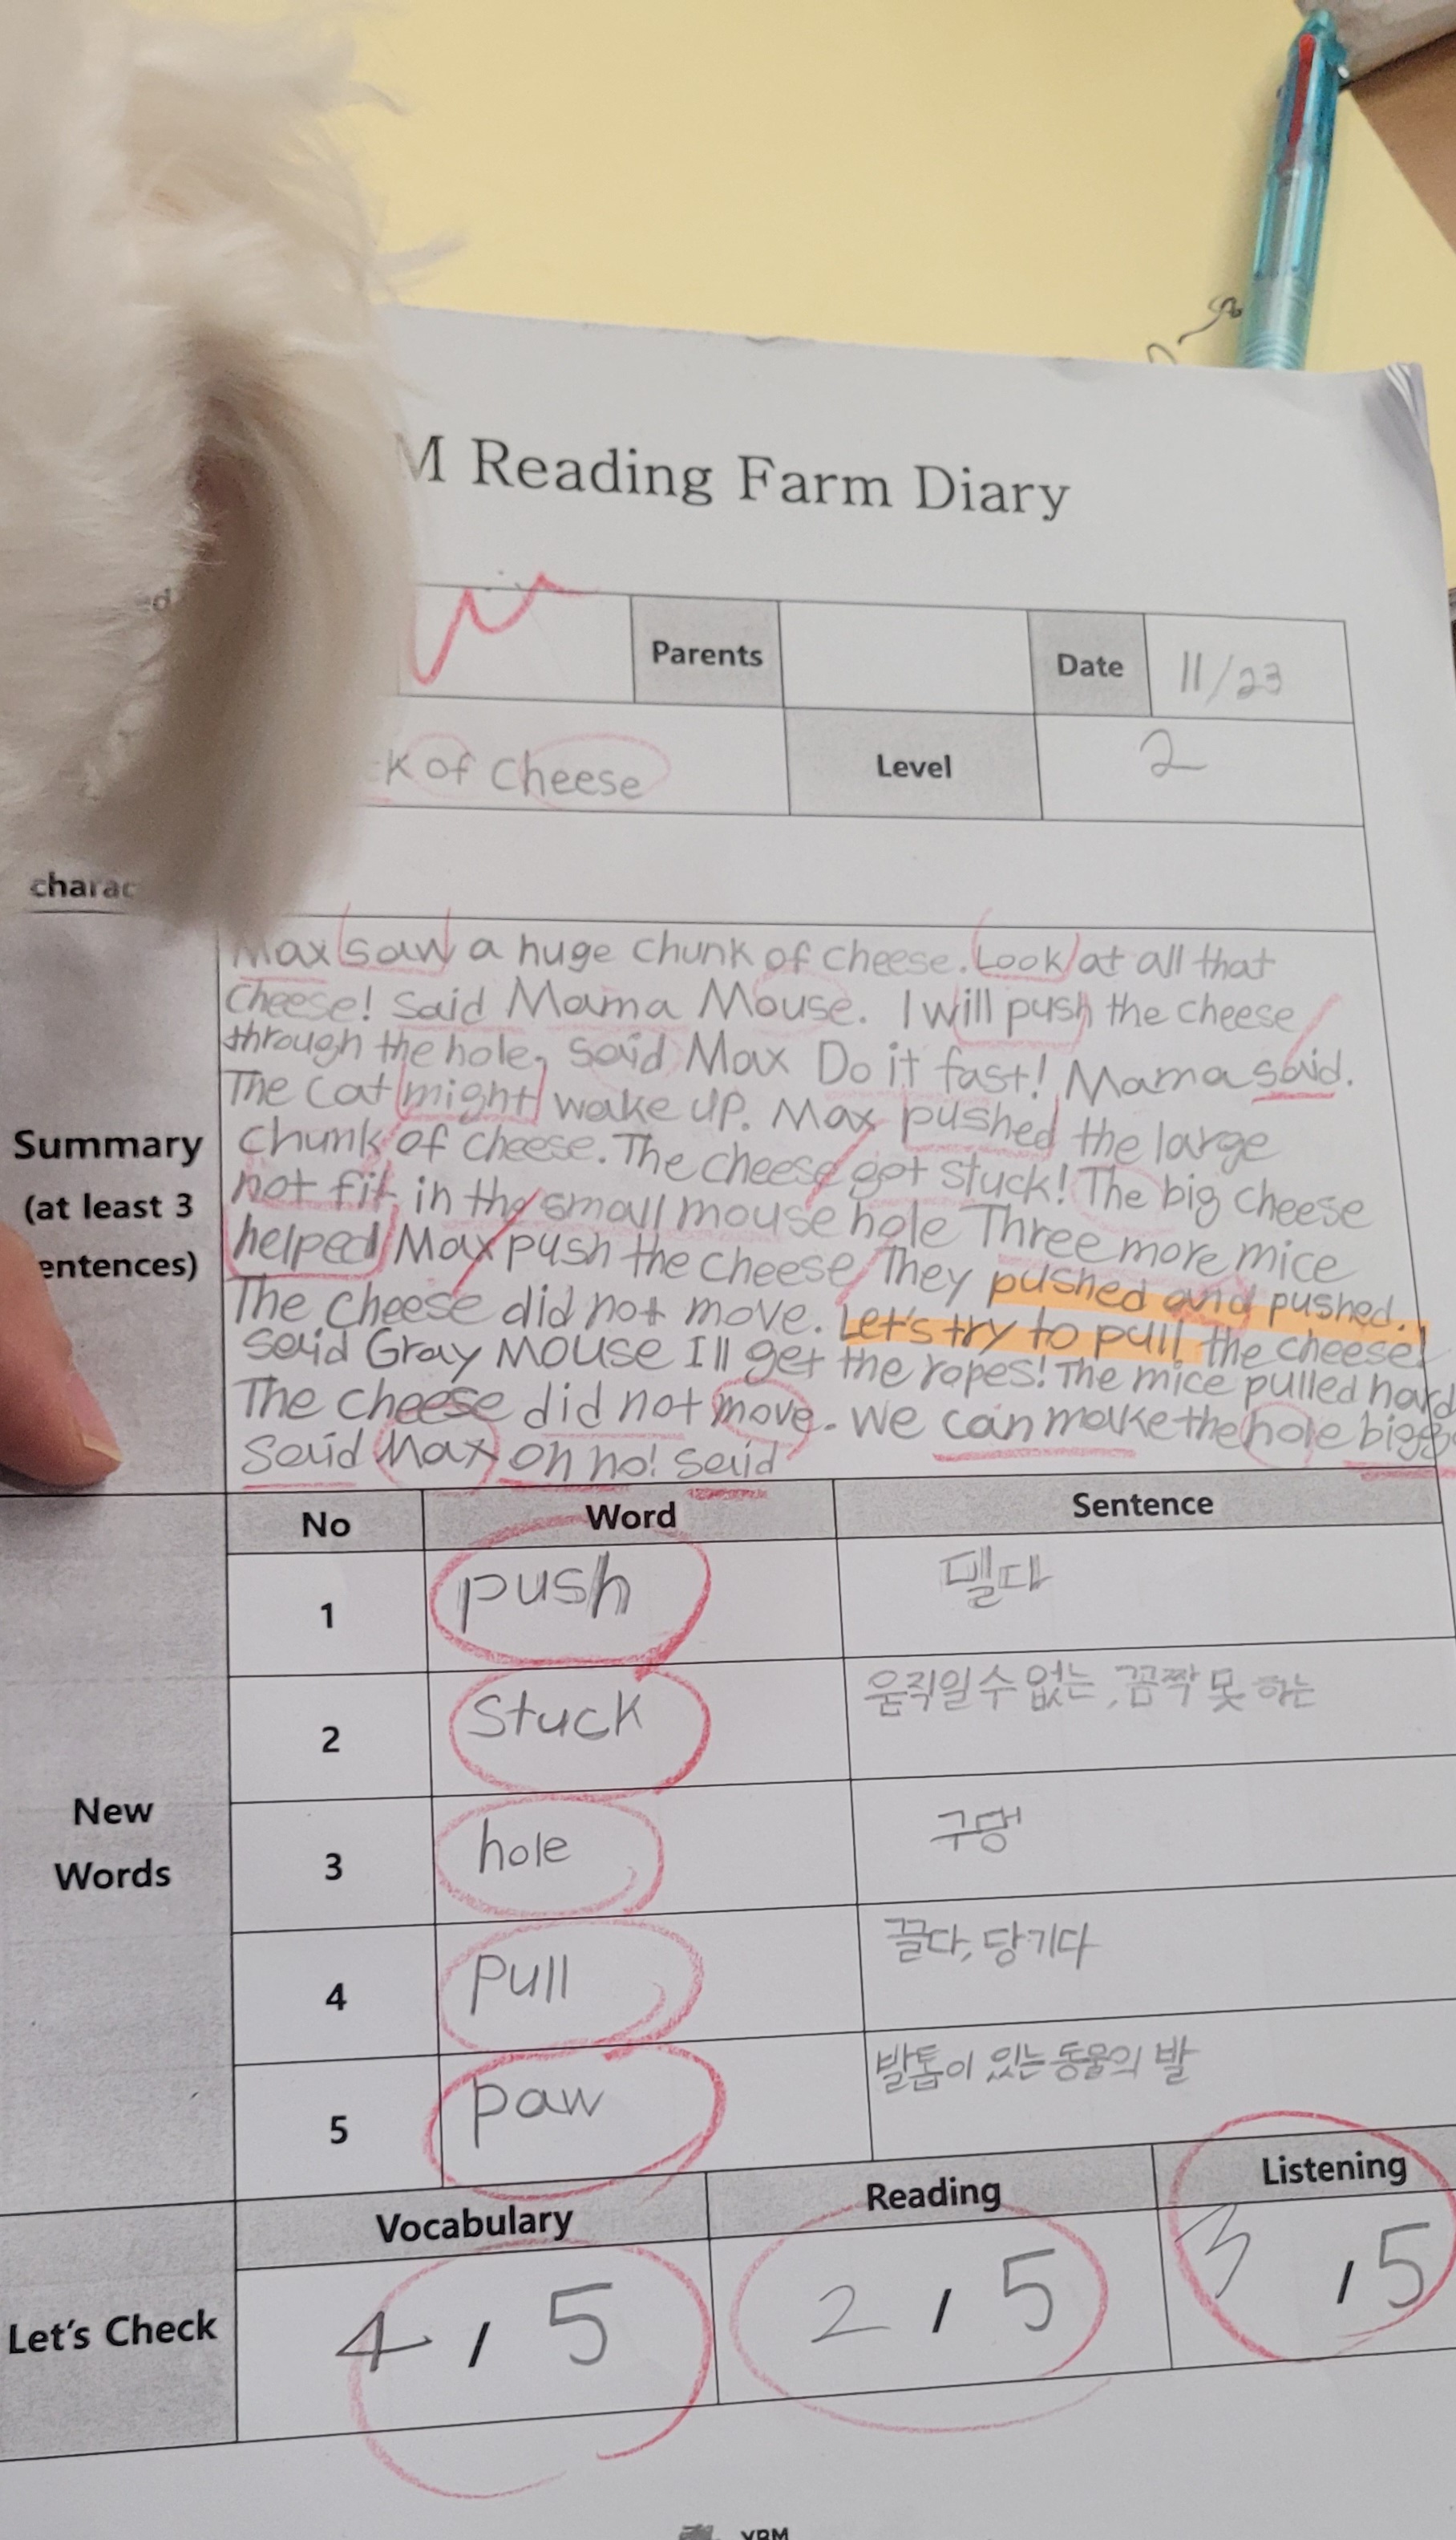 M Reading Farm Diary
Parents
Date
11/23
k of cheese
Level
2
charac
Max saw a huge chunk of cheese. Look at all that
cheese! Said Mama Mouse. I will push the cheese
through the hole, said Max Do it fast! Mama said.
The cat might wake up. Max pushed the large
chunk of cheese. The cheese got stuck! The big cheese
not fit in the small mouse hole Three more mice
helped Max push the cheese They pushed and pushed.
The cheese did not move. Let's try to pull the cheese!
said Gray Mouse I'll get the ropes! The mice pulled hard
The cheese did not move. We can make the hole bigg
Said Max oh no! said
Summary
(at least 3
entences)
No
Word
Sentence
1
push
밀다
2
stuck
움직일 수 없는, 꼼짝 못 하는
3
hole
구멍
4
pull
끌다, 당기다
5
paw
발톱이 있는 동물의 발
New
Words
Vocabulary
Reading
Listening
Let's Check
4 / 5
2 / 5
3 / 5
YBM